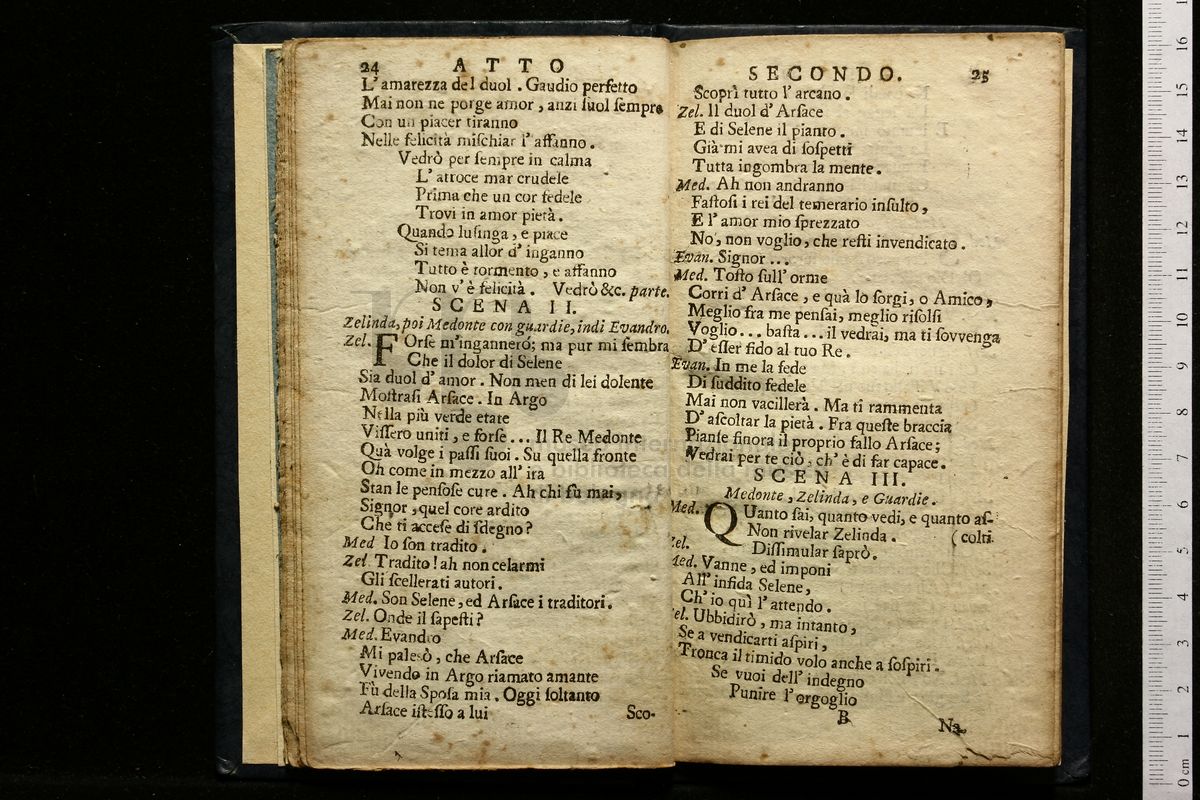 24 ATTO
L' amarezza del duol . Gaudio perfetto
Mai non ne porge amor , anzi ſuol ſempre
Con un piacer tiranno
Nelle felicità miſchiar l' affanno .
Vedrò per ſempre in calma
L' atroce mar crudele
Prima che un cor fedele
Trovi in amor pietà .
Quando luſinga , e piace
Si tema allor d' inganno
Tutto è tormento , e affanno
Non v' è felicità . Vedrò &c. parte.
SCENA II.
Zelinda, poi Medonte con guardie, indi Evandro.
Zel. FOrſe m'ingannerò; ma pur mi ſembra
Che il dolor di Selene
Sia duol d' amor . Non men di lei dolente
Moſtraſi Arſace . In Argo
Nella più verde etate
Viſſero uniti , e forſe ... Il Re Medonte
Quà volge i paſſi ſuoi . Su quella fronte
Oh come in mezzo all' ira
Stan le penſoſe cure . Ah chi fù mai,
Signor , quel core ardito
Che ti acceſe di ſdegno ?
Med Io ſon tradito .
Zel Tradito ! ah non celarmi
Gli ſcellerati autori .
Med. Son Selene , ed Arſace i traditori .
Zel. Onde il ſapeſti ?
Med. Evandro
Mi palesò , che Arſace
Vivendo in Argo riamato amante
Fù della Spoſa mia . Oggi ſoltanto
Arſace iſteſſo a lui
Sco-
SECONDO. 25
Scoprì tutto l' arcano .
Zel. Il duol d' Arſace
E di Selene il pianto .
Già mi avea di ſoſpetti
Tutta ingombra la mente .
Med. Ah non andranno
Faſtoſi i rei del temerario inſulto ,
E l' amor mio ſprezzato
No, non voglio, che reſti invendicato .
Evan. Signor ...
Med. Toſto ſull' orme
Corri d' Arſace , e quà lo ſorgi, o Amico,
Meglio fra me penſai, meglio riſolſi
Voglio ... baſta ... il vedrai, ma ti ſovvenga
D' eſſer fido al tuo Re .
Evan. In me la fede
Di ſuddito fedele
Mai non vacillerà . Ma ti rammenta
D' aſcoltar la pietà . Fra queſte braccia
Pianſe finora il proprio fallo Arſace;
Vedrai per te ciò, ch' è di far capace.
SCENA III.
Medonte , Zelinda, e Guardie .
Med. QUanto ſai, quanto vedi, e quanto aſ-
Non rivelar Zelinda . (colti
Zel. Diſſimular ſaprò.
Med. Vanne , ed imponi
All' infida Selene,
Ch' io quì l' attendo .
Zel. Ubbidirò , ma intanto,
Se a vendicarti aſpiri ,
Tronca il timido volo anche a ſoſpiri .
Se vuoi dell' indegno
Punire l' orgoglio
B
Na-